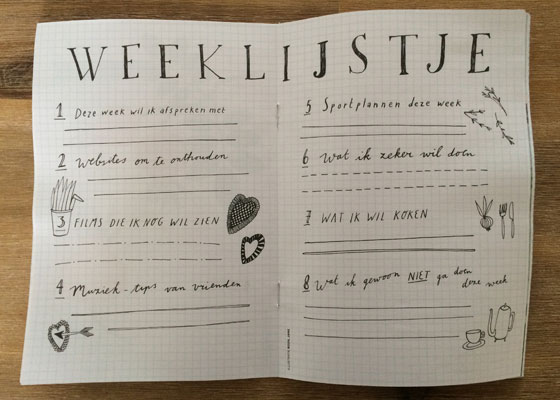 WEEKLIJSTJE
1 Deze week wil ik afspreken met
2 Websites om te onthouden
3 FILMS DIE IK NOG WIL ZIEN
4 Muziek-tips van vrienden
5 Sportplannen deze week
6 Wat ik zeker wil doen
7 WAT IK WIL KOKEN
8 Wat ik gewoon NIET ga doen
deze week